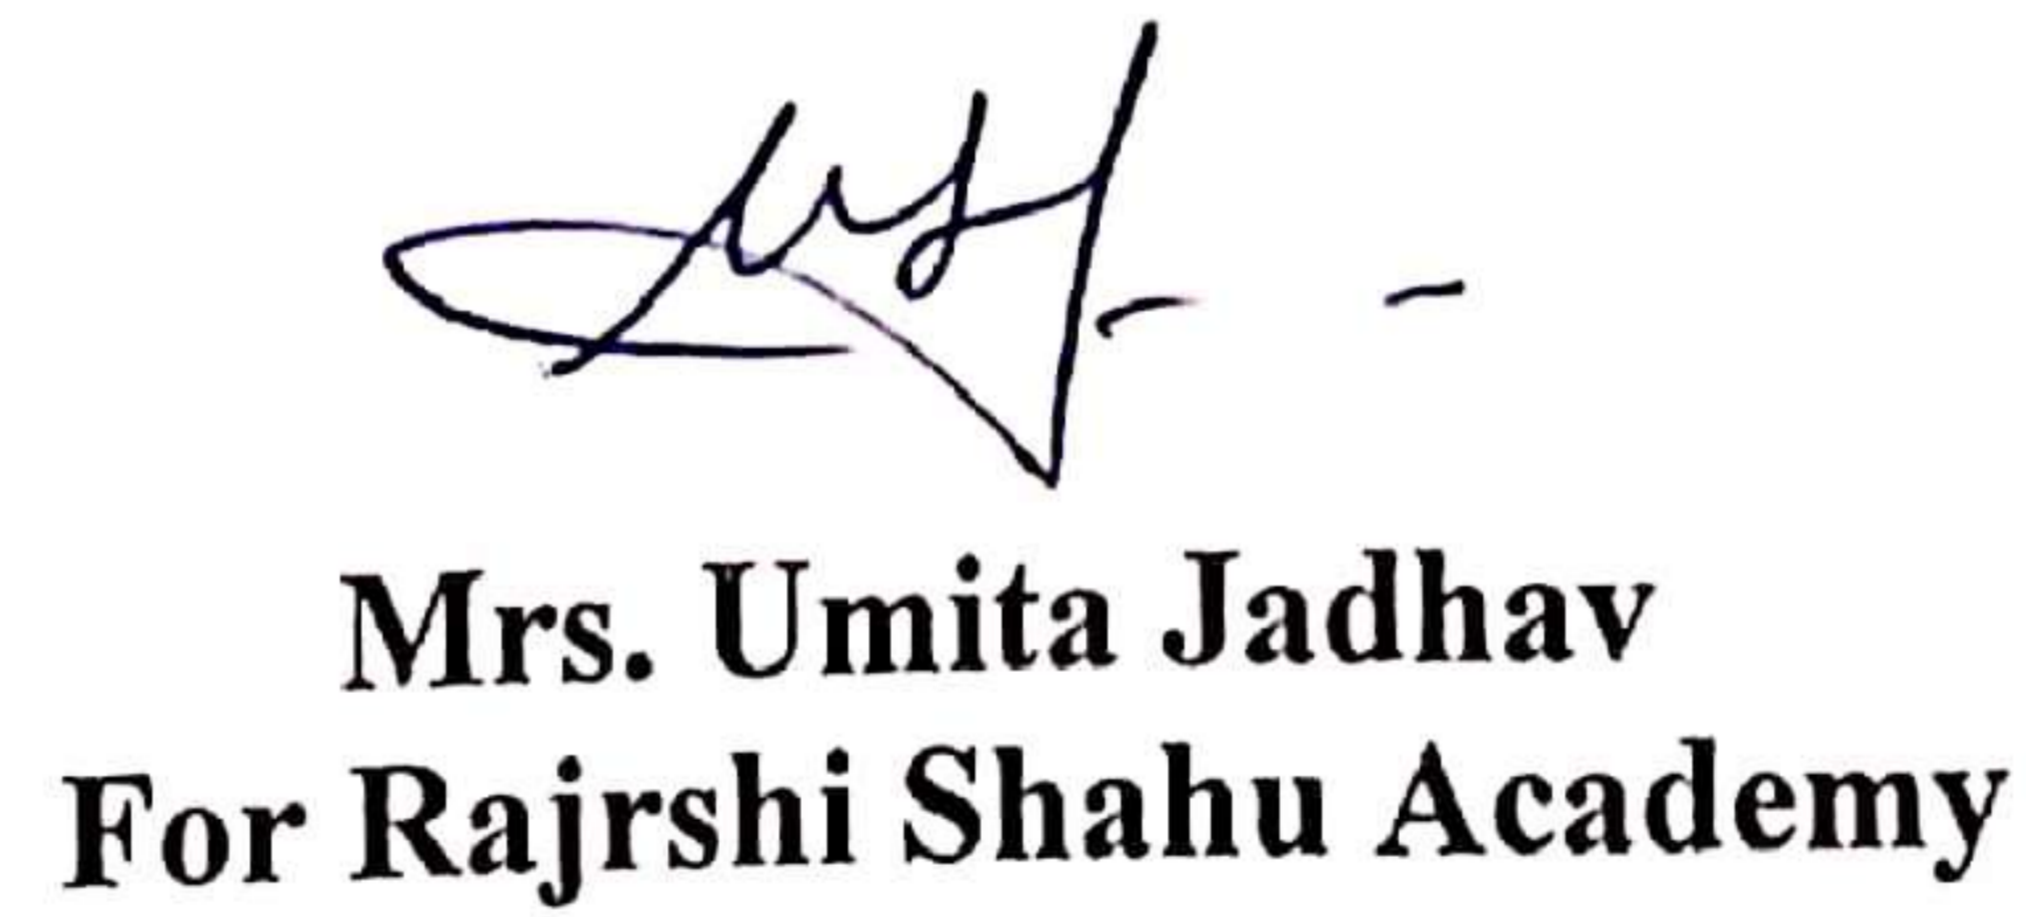 Mrs. Umita Jadhav
For Rajrshi Shahu Academy